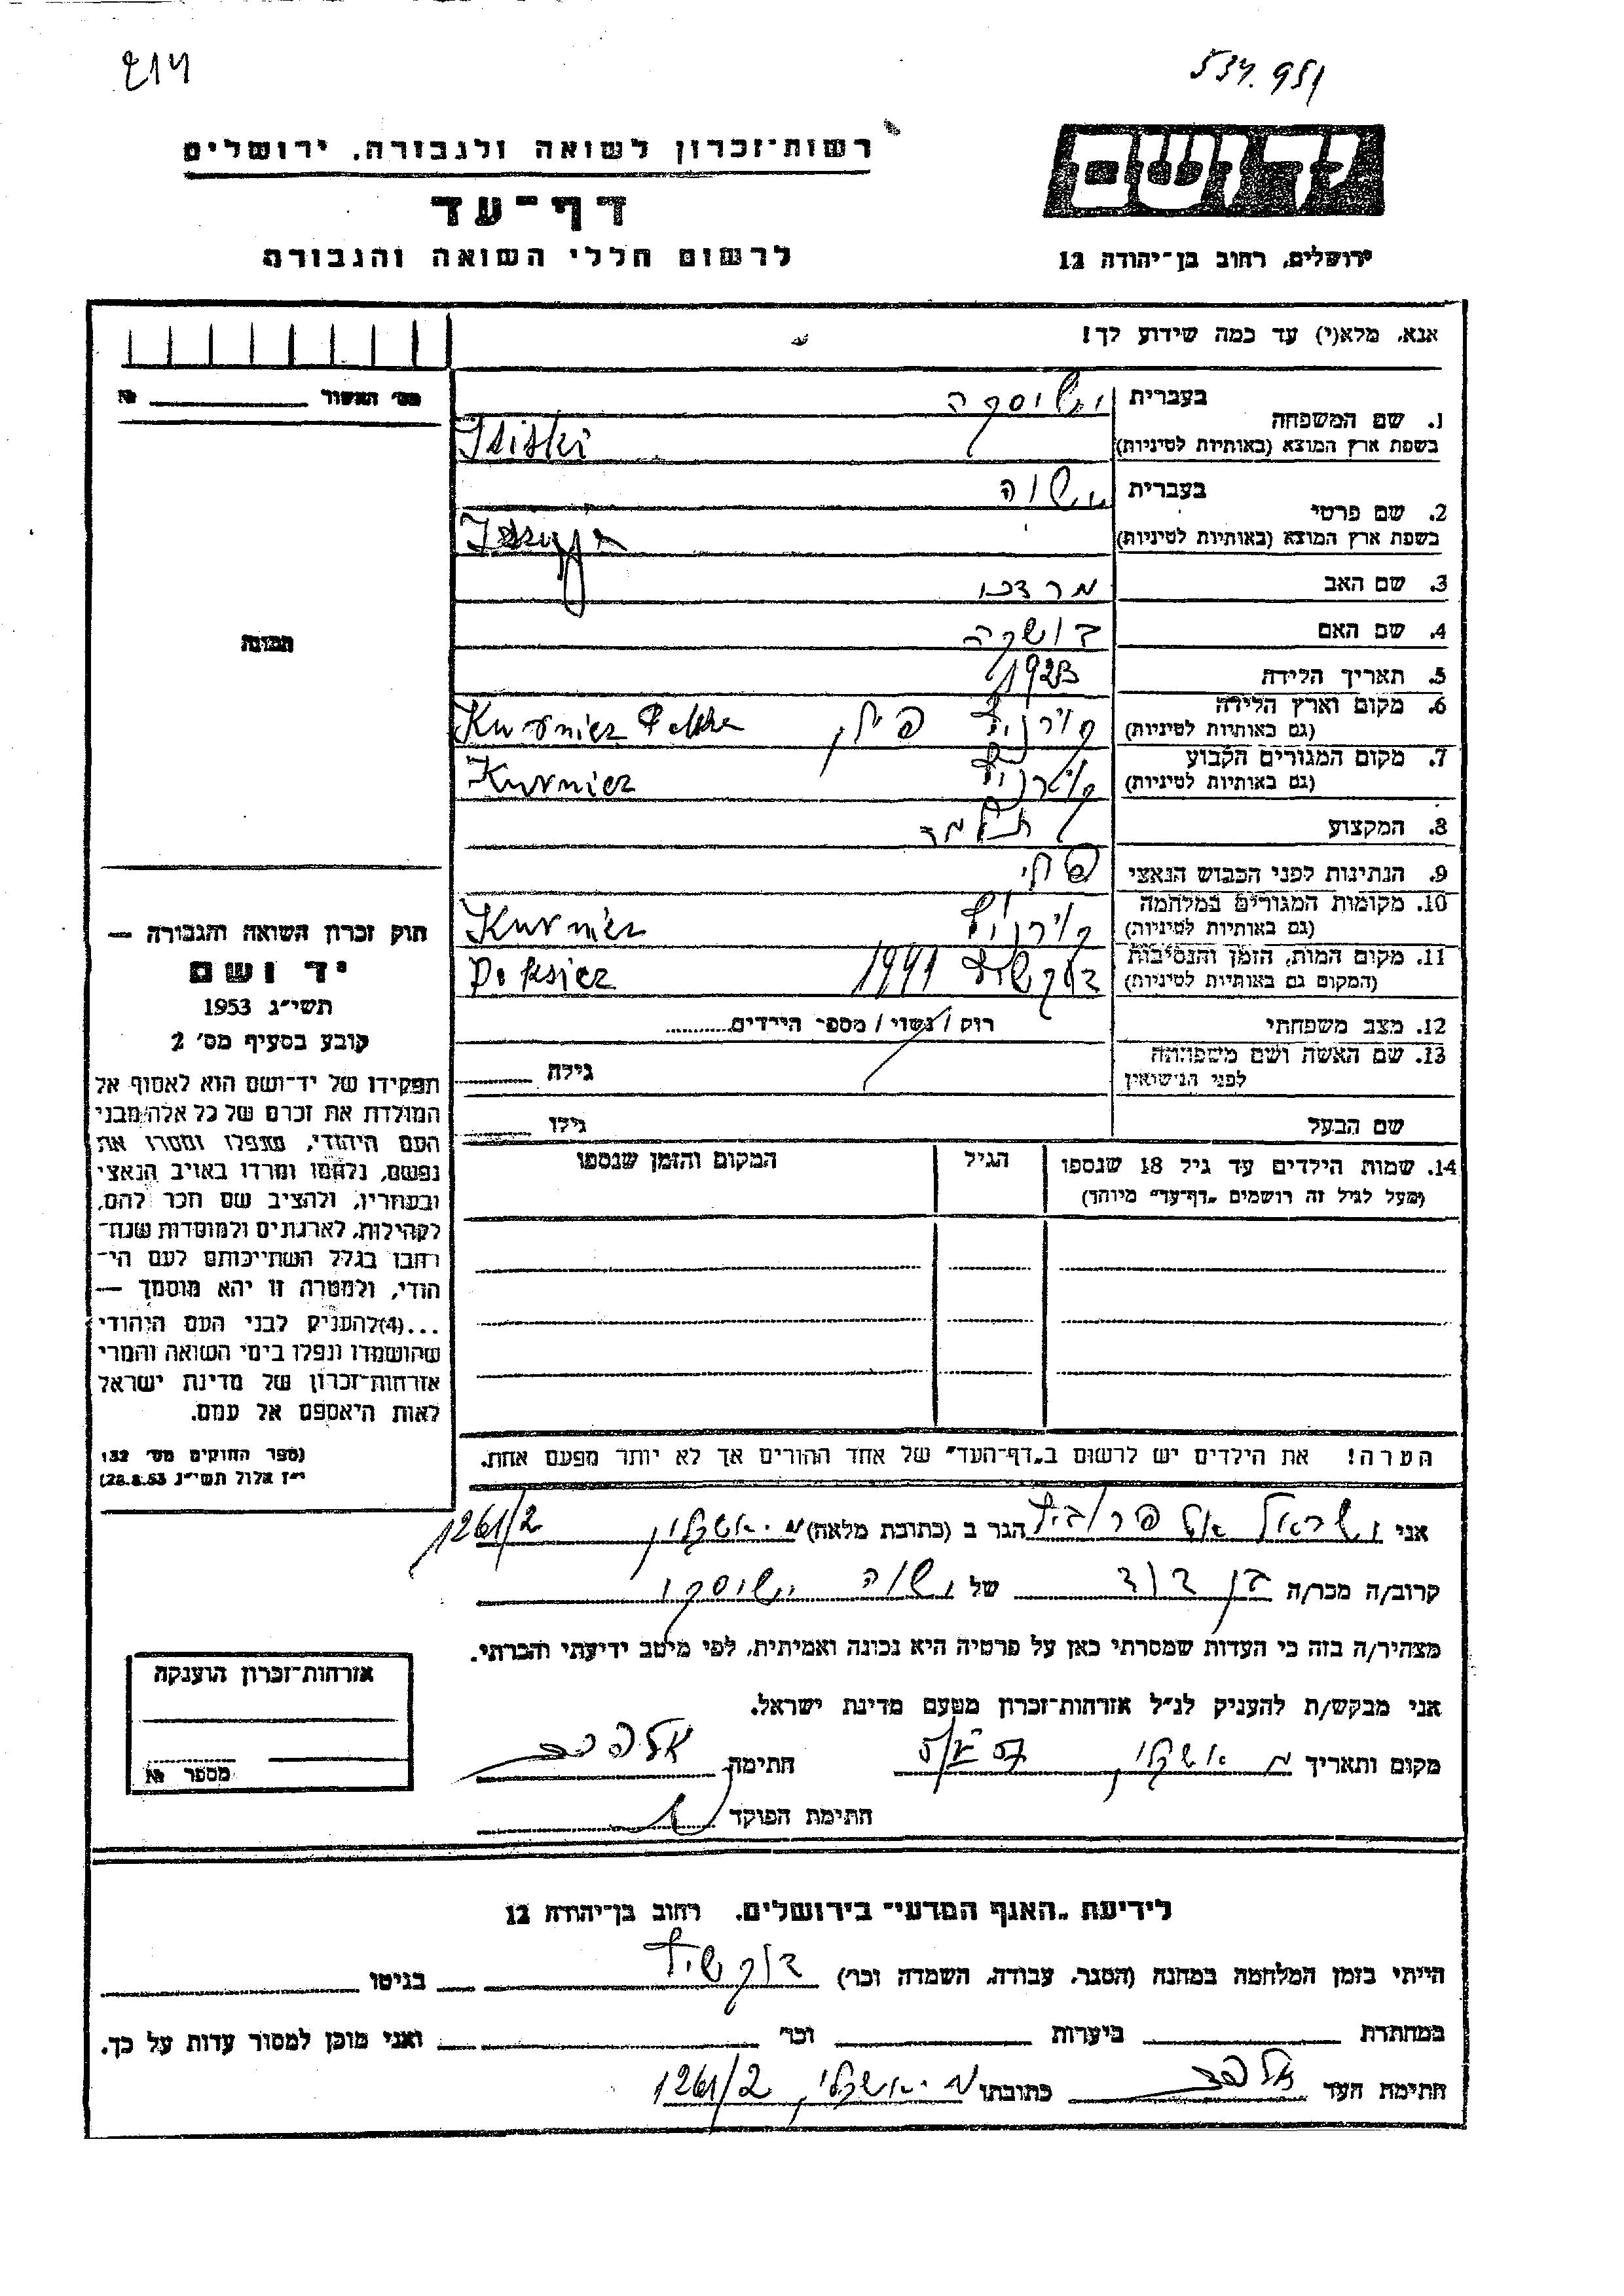 214
534.951
רשות־זכרון לשואה ולגבורה. ירושלים
דף־עד
לרשום חללי השואה והגבורה
יד ושם
ירושלים, רחוב בן־יהודה 12
אנא, מלא(י) עד כמה שידוע לך!
מס׳ האשור №
1. שם המשפחה
בעברית
בשפת ארץ המוצא (באותיות לטיניות) Isiski
2. שם פרטי
בעברית ישעיה
בשפת ארץ המוצא (באותיות לטיניות)
3. שם האב מרדכי
4. שם האם דושקה
5. תאריך הלידה 1923
6. מקום וארץ הלידה
(גם באותיות לטיניות) פולין
7. מקום המגורים הקבוע
(גם באותיות לטיניות) Kurniez
8. המקצוע תלמיד
9. הנתינות לפני הכבוש הנאצי פולני
10. מקומות המגורים במלחמה
(גם באותיות לטיניות) Kurniez
11. מקום המות, הזמן והנסיבות
(המקום גם באותיות לטיניות) דוקשיץ 1941 Doksicz
12. מצב משפחתי רווק / נשוי / מספר הילדים
13. שם האשה ושם משפחתה
לפני הנישואין גילה
שם הבעל גילו
14. שמות הילדים עד גיל 18 שנספו הגיל המקום והזמן שנספו
(מעל לגיל זה רושמים „דף־עד״ מיוחד)
הערה! את הילדים יש לרשום ב„דף־העד״ של אחד ההורים אך לא יותר מפעם אחת.
תמונה
חוק זכרון השואה והגבורה —
יד ושם
תשי״ג 1953
קובע בסעיף מס׳ 2
תפקידו של יד־ושם הוא לאסוף אל
המולדת את זכרם של כל אלה מבני
העם היהודי, שנפלו ומסרו את
נפשם, נלחמו ומרדו באויב הנאצי
ובעוזריו, ולהציב שם וזכר להם,
לקהילות, לארגונים ולמוסדות שנח־
רבו בגלל השתייכותם לעם הי־
הודי, ולמטרה זו יהא מוסמך —
...(4) להעניק לבני העם היהודי
שהושמדו ונפלו בימי השואה והמרי
אזרחות־זכרון של מדינת ישראל
לאות היאספם אל עמם.
(ספר החוקים מס׳ 132
י״ז אלול תשי״ג 28.8.53)
אני ישראל הגר ב (כתובת מלאה) אשקלון 1261/2
קרוב/ה מכר/ה בן דוד של ישעיה
מצהיר/ה בזה כי העדות שמסרתי כאן על פרטיה היא נכונה ואמיתית, לפי מיטב ידיעתי והכרתי.
אני מבקש/ת להעניק לנ״ל אזרחות־זכרון מטעם מדינת ישראל.
מקום ותאריך אשקלון חתימה
חתימת הפוקד
אזרחות־זכרון הוענקה
מספר №
לידיעת „האגף המדעי״ בירושלים. רחוב בן־יהודה 12
הייתי בזמן המלחמה במחנה (הסגר, עבודה, השמדה וכו׳) דוקשיץ בגיטו
במחתרת ביערות וכו׳ ואני מוכן למסור עדות על כך.
חתימת העד כתובתו אשקלון 1261/2